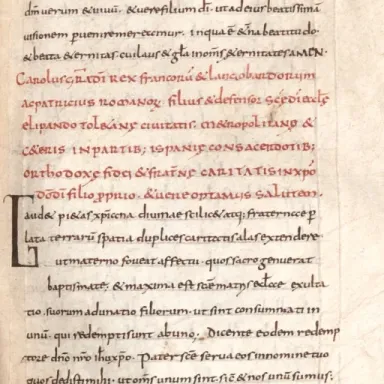 dm̄ verum & uiuū. & uere filium dī. ut ad eius beatissimā
uisionem peruenire mereamur. in qua ē & ꝉna beatitudo
& beata & ernitas. cui laus & gła in om̄s & ernitates. AMEN.
CAROLUS GRA DI REX francorū & langobardorum
AC PATRICIUS ROMANOR. filius & defensor scę dī eclę
elipando toletanę ciuitatis. m&ropolitano &
c&eris in partib; ispanię consacerdotib;
orthodoxę fidei & fraṫnę caritatis in xp̄o
dī filio proprio. & uere optamus salutem.
Laud& pi&as xp̄icna diuinae scilic& atq; fraternae per
lata terrarū spatia duplices caritatis alas extendere
ut materno foueat affectu. quos sacro genuerat
baptismate. & maxima est scae matris ecl̄ae exulta
tio. suorum adunatio filiorum. ut sint consummati in
unū. qui redempti sunt ab uno. Dicente eodem redemp
tore dn̄o nr̄o ihu xp̄o. Pater scē serua eos in nomine tuo
quos dedisti mihi. ut om̄s unum sint. sic & nos unū sumus.